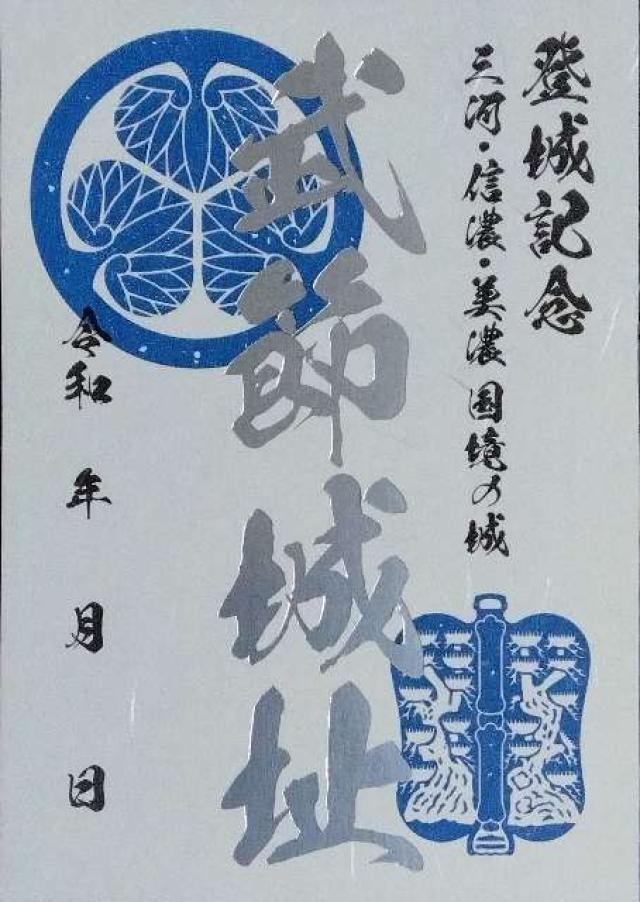 登城記念
三河・信濃・美濃国境の城
武節城址
令和 年 月 日